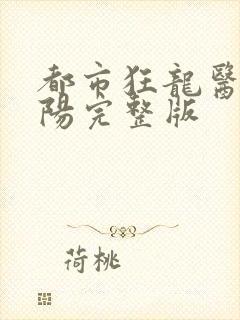 都市狂龍醫
陽完整版
荷桃